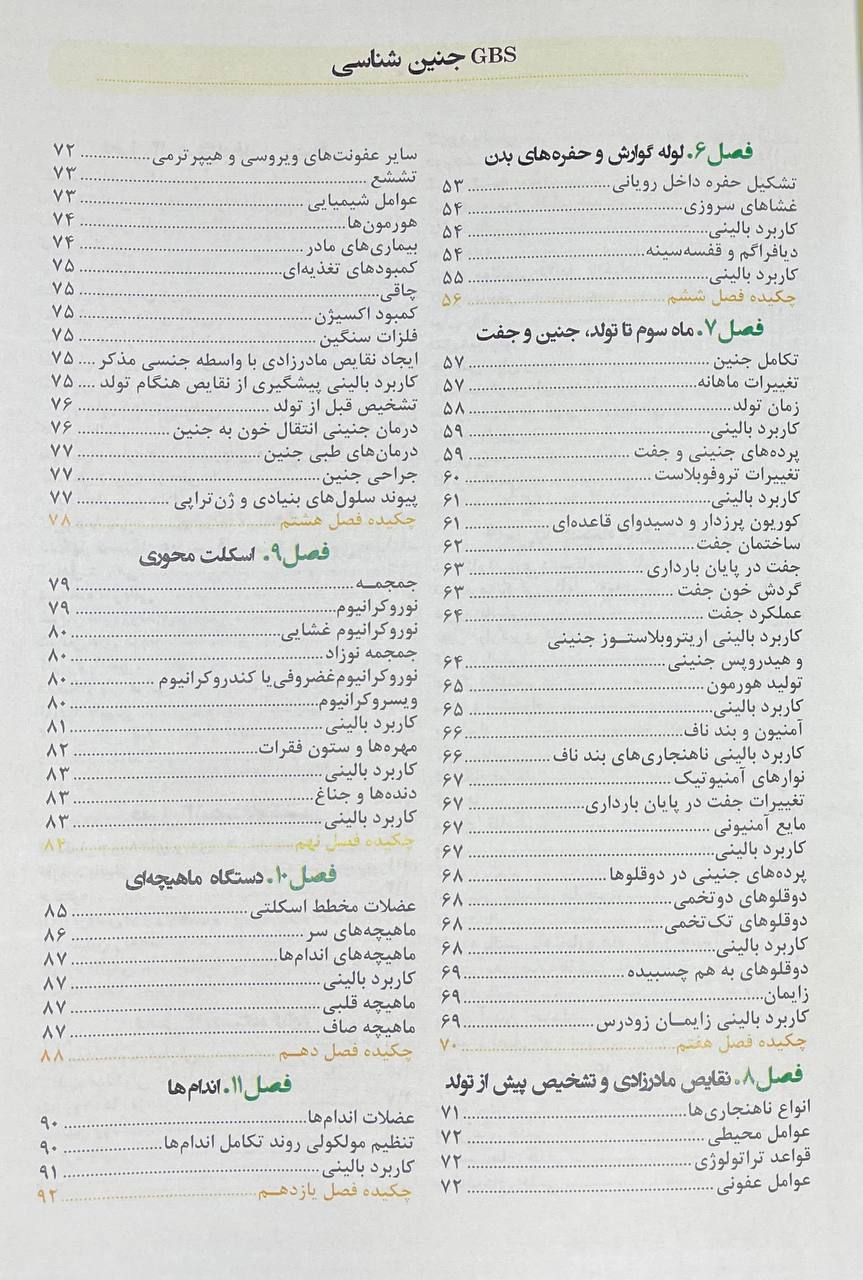 GBS جنین شناسی
فصل ۶. لوله گوارش و حفره‌های بدن
تشکیل حفره داخل رویانی ........ ۵۳
غشاهای سروزی ........ ۵۴
کاربرد بالینی ........ ۵۴
دیافراگم و قفسه‌سینه ........ ۵۴
کاربرد بالینی ........ ۵۵
چکیده فصل ششم ........ ۵۶
فصل ۷. ماه سوم تا تولد، جنین و جفت
تکامل جنین ........ ۵۷
تغییرات ماهانه ........ ۵۷
زمان تولد ........ ۵۸
کاربرد بالینی ........ ۵۹
پرده‌های جنینی و جفت ........ ۵۹
تغییرات تروفوبلاست ........ ۶۰
کاربرد بالینی ........ ۶۱
کوریون پرزدار و دسیدوای قاعده‌ای ........ ۶۱
ساختمان جفت ........ ۶۲
جفت در پایان بارداری ........ ۶۳
گردش خون جفت ........ ۶۳
عملکرد جفت ........ ۶۴
کاربرد بالینی اریتروبلاستوز جنینی
و هیدروپس جنینی ........ ۶۴
تولید هورمون ........ ۶۵
کاربرد بالینی ........ ۶۵
آمنیون و بند ناف ........ ۶۶
کاربرد بالینی ناهنجاری‌های بند ناف ........ ۶۶
نوارهای آمنیوتیک ........ ۶۷
تغییرات جفت در پایان بارداری ........ ۶۷
مایع آمنیونی ........ ۶۷
کاربرد بالینی ........ ۶۷
پرده‌های جنینی در دوقلوها ........ ۶۸
دوقلوهای دوتخمی ........ ۶۸
دوقلوهای تک‌تخمی ........ ۶۸
کاربرد بالینی ........ ۶۸
دوقلوهای به هم چسبیده ........ ۶۹
زایمان ........ ۶۹
کاربرد بالینی زایمان زودرس ........ ۶۹
چکیده فصل هفتم ........ ۷۰
فصل ۸. نقایص مادرزادی و تشخیص پیش از تولد
انواع ناهنجاری‌ها ........ ۷۱
عوامل محیطی ........ ۷۲
قواعد تراتولوژی ........ ۷۲
عوامل عفونی ........ ۷۲
سایر عفونت‌های ویروسی و هیپرترمی ........ ۷۲
تشعشع ........ ۷۳
عوامل شیمیایی ........ ۷۳
هورمون‌ها ........ ۷۴
بیماری‌های مادر ........ ۷۴
کمبودهای تغذیه‌ای ........ ۷۵
چاقی ........ ۷۵
کمبود اکسیژن ........ ۷۵
فلزات سنگین ........ ۷۵
ایجاد نقایص مادرزادی با واسطه جنسی مذکر .... ۷۵
کاربرد بالینی پیشگیری از نقایص هنگام تولد .... ۷۵
تشخیص قبل از تولد ........ ۷۶
درمان جنینی انتقال خون به جنین ........ ۷۶
درمان‌های طبی جنین ........ ۷۷
جراحی جنین ........ ۷۷
پیوند سلول‌های بنیادی و ژن‌تراپی ........ ۷۷
چکیده فصل هشتم ........ ۷۸
فصل ۹. اسکلت محوری
جمجمه ........ ۷۹
نوروکرانیوم ........ ۷۹
نوروکرانیوم غشایی ........ ۸۰
جمجمه نوزاد ........ ۸۰
نوروکرانیوم‌غضروفی‌یا کندروکرانیوم ........ ۸۰
ویسروکرانیوم ........ ۸۰
کاربرد بالینی ........ ۸۱
مهره‌ها و ستون فقرات ........ ۸۲
کاربرد بالینی ........ ۸۳
دنده‌ها و جناغ ........ ۸۳
کاربرد بالینی ........ ۸۳
چکیده فصل نهم ........ ۸۴
فصل ۱۰. دستگاه ماهیچه‌ای
عضلات مخطط اسکلتی ........ ۸۵
ماهیچه‌های سر ........ ۸۶
ماهیچه‌های اندام‌ها ........ ۸۷
کاربرد بالینی ........ ۸۷
ماهیچه قلبی ........ ۸۷
ماهیچه صاف ........ ۸۷
چکیده فصل دهم ........ ۸۸
فصل ۱۱. اندام‌ها
عضلات اندام‌ها ........ ۹۰
تنظیم مولکولی روند تکامل اندام‌ها ........ ۹۰
کاربرد بالینی ........ ۹۱
چکیده فصل یازدهم ........ ۹۲